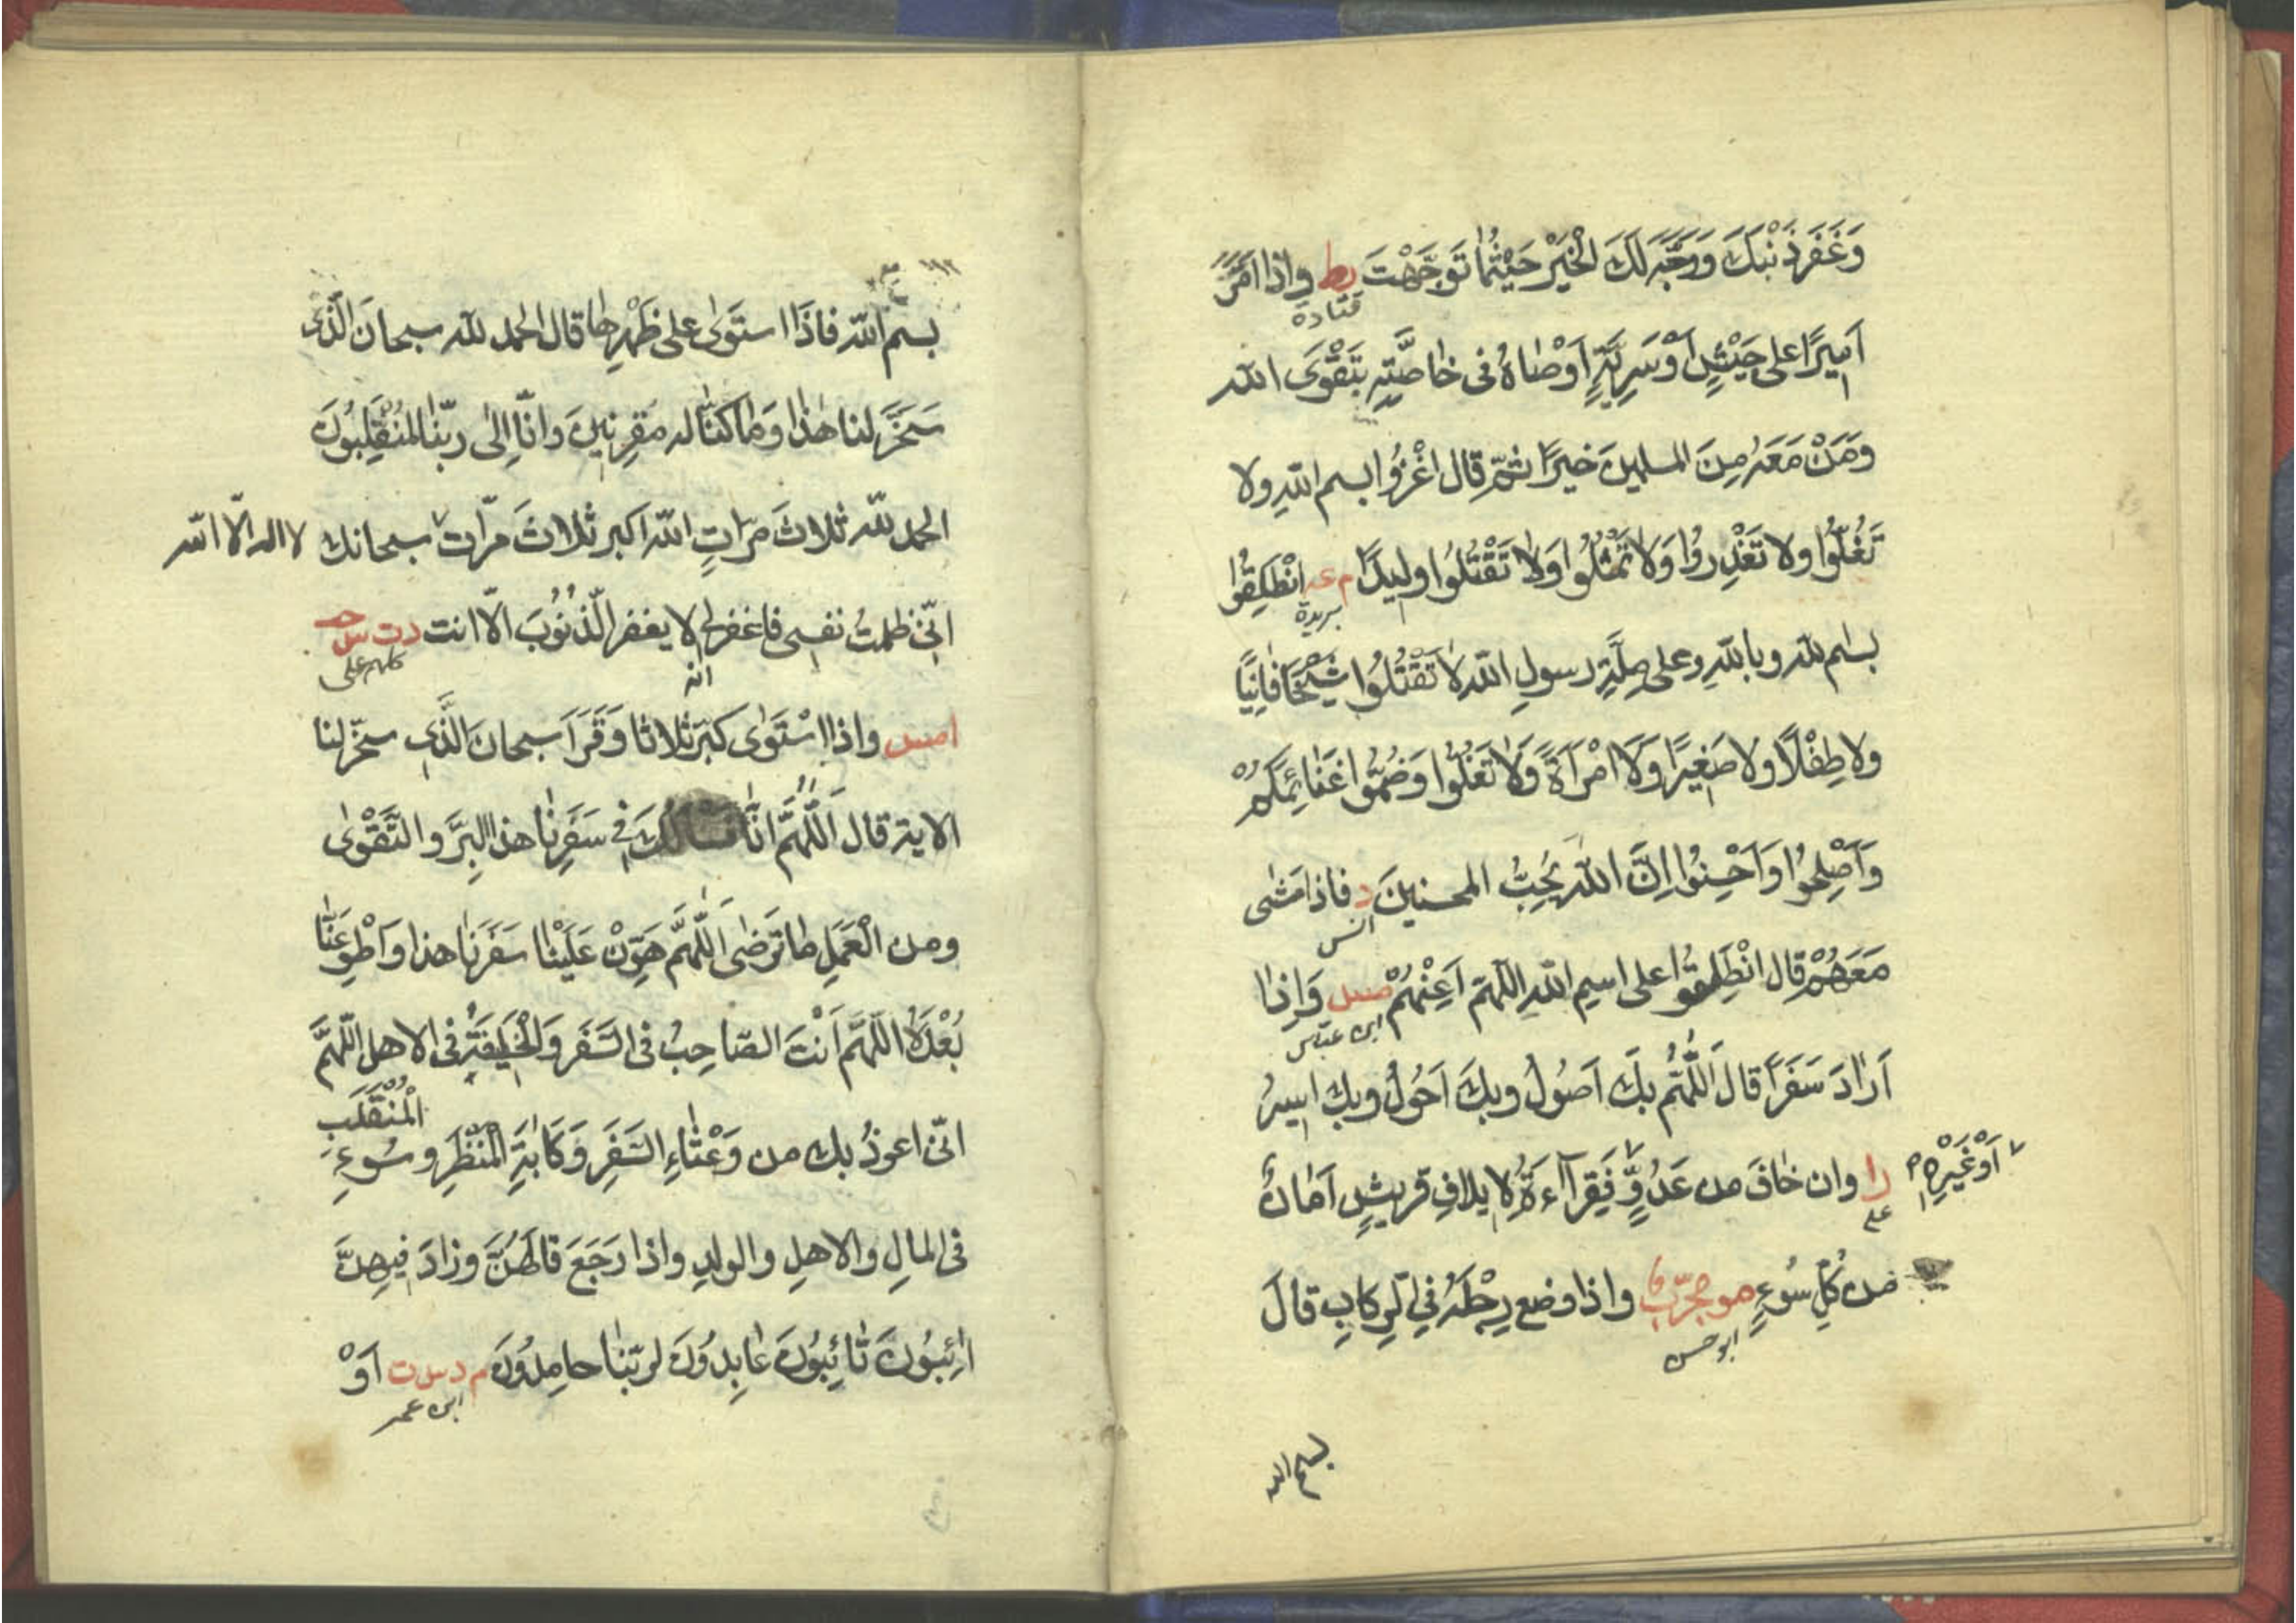 وَغَفَرَ ذَنْبَكَ وَوَجَّهَ لَكَ الْخَيْرَ حَيْثُمَا تَوَجَّهْتَ ط واذا اَمَّرَ
قتادة
اَمِيرًا على جَيْشٍ اَوْ سَرِيَّةٍ اَوْصَاهُ فى خَاصَّتِهِ بِتَقْوَى الله
وَمَنْ مَعَهُ مِنَ المسلمين خيرًا ثمّ قال اغْزُوا بسم اللهِ ولا
تَغُلُّوا ولا تَغْدِرُوا وَلَا تَمْثُلُوا وَلَا تَقْتُلُوا وليدًا م عه اِنْطَلِقُوا
بريدة
بسم الله وبالله وعلى مِلَّةِ رسولِ الله لَا تَقْتُلُوا شَيْخًا فَانِيًا
ولا طِفْلًا ولا صَغِيرًا وَلَا امْرَأَةً وَلَا تَغُلُّوا وَضُمُّوا غَنَائِمَكُمْ
وَاَصْلِحُوا وَاَحْسِنُوا اِنَّ اللهَ يُحِبُّ المحسنينَ د فاذا مَشٰى
انس
مَعَهُمْ قال انْطَلِقُوا على اسمِ اللهِ اللّهمّ اَعِنْهُمْ مس وَاِذَا
ابن عبّاس
اَرَادَ سَفَرًا قال اَللّٰهُمَّ بِكَ اَصُولُ وبِكَ اَحُولُ وبِكَ اَسِيرُ
ا ر وان خَافَ من عَدُوٍّ فَقِرَاءَةُ لِايلافِ قريشٍ اَمَانٌ
على
اَوْ غَيْرِهِ
من كُلِّ سُوءٍ مو مجرّب واذا وضع رِجْلَهُ فِى الرِّكابِ قالَ
ابو حسن
بسم الله
١١٢
بسم الله فَاذَا استَوَى على ظَهْرِهَا قال الحمد لله سبحانَ الَّذى
سَخَّرَ لنا هٰذَا وَمَا كُنَّا له مُقْرِنِينَ وَانَّا اِلٰى رَبِّنَا لَمُنْقَلِبُونَ
الحمد لله ثلاثَ مرّاتٍ الله اكبر ثلاثَ مرّات سبحانك
لا اله الّا الله
اِنِّى ظلمتُ نفسى فاغفرلى لا يغفر الذُّنُوبَ الّا انت د ت س حب
انه
كلهم على
امس واذا اسْتَوٰى كَبَّرَ ثلاثا وَقَرَأَ سبحانَ الَّذِى سخّر لنا
الاية قال اَللّٰهُمَّ انَّا نَسْألُكَ فى سَفَرِنَا هذا الْبِرَّ والتَّقْوٰى
ومن الْعَمَلِ ما تَرضٰى اَللّٰهُمَّ هَوِّنْ عَلَيْنَا سَفَرَنَا هذا وَاطْوِ عَنَّا
بُعْدَهُ اللّهمَّ اَنْتَ الصَّاحِبُ فى السَّفَرِ وَالْخَلِيفَةُ فى الاهل اللّهمَّ
انّى اعوذُ بك من وَعْثَاءِ السَّفَرِ وَكَآبَةِ الْمَنْظَرِ وسُوءِ
الْمُنْقَلَبِ
فى المالِ والاهلِ والولدِ واذا رَجَعَ قالَهُنَّ وزادَ فيهنَّ
آئِبُونَ تَائِبُونَ عَابِدُونَ لربّنا حامِدُونَ م د س ت اَوْ
ابن عمر